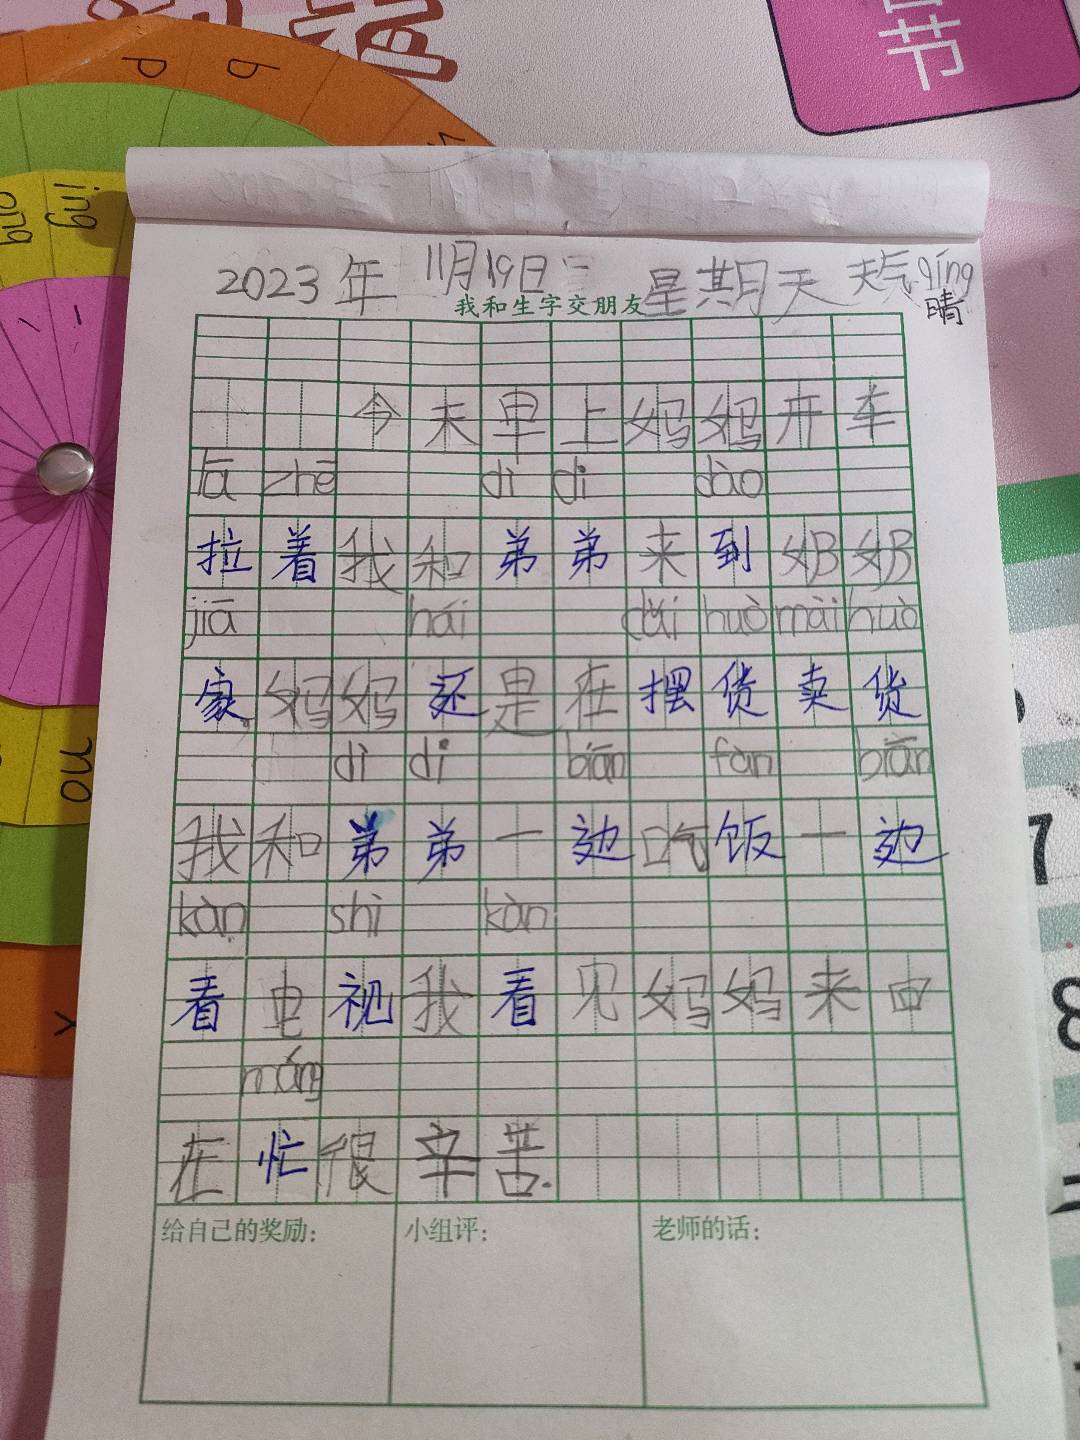 节
b d
ing
ong
ou
2023年 11月19日 星期天 天气qíng
晴
我和生字交朋友
今天早上妈妈开车
lā zhē dì di dào
拉着我和弟弟来到奶奶
jiā hái dǎi huò mài huò
家。妈妈还是在摆货卖货
dì di biān fàn biān
我和弟弟一边吃饭一边
kàn shì kàn
看电视我看见妈妈来回
máng
在忙很辛苦.
给自己的奖励: 小组评: 老师的话:
7
8